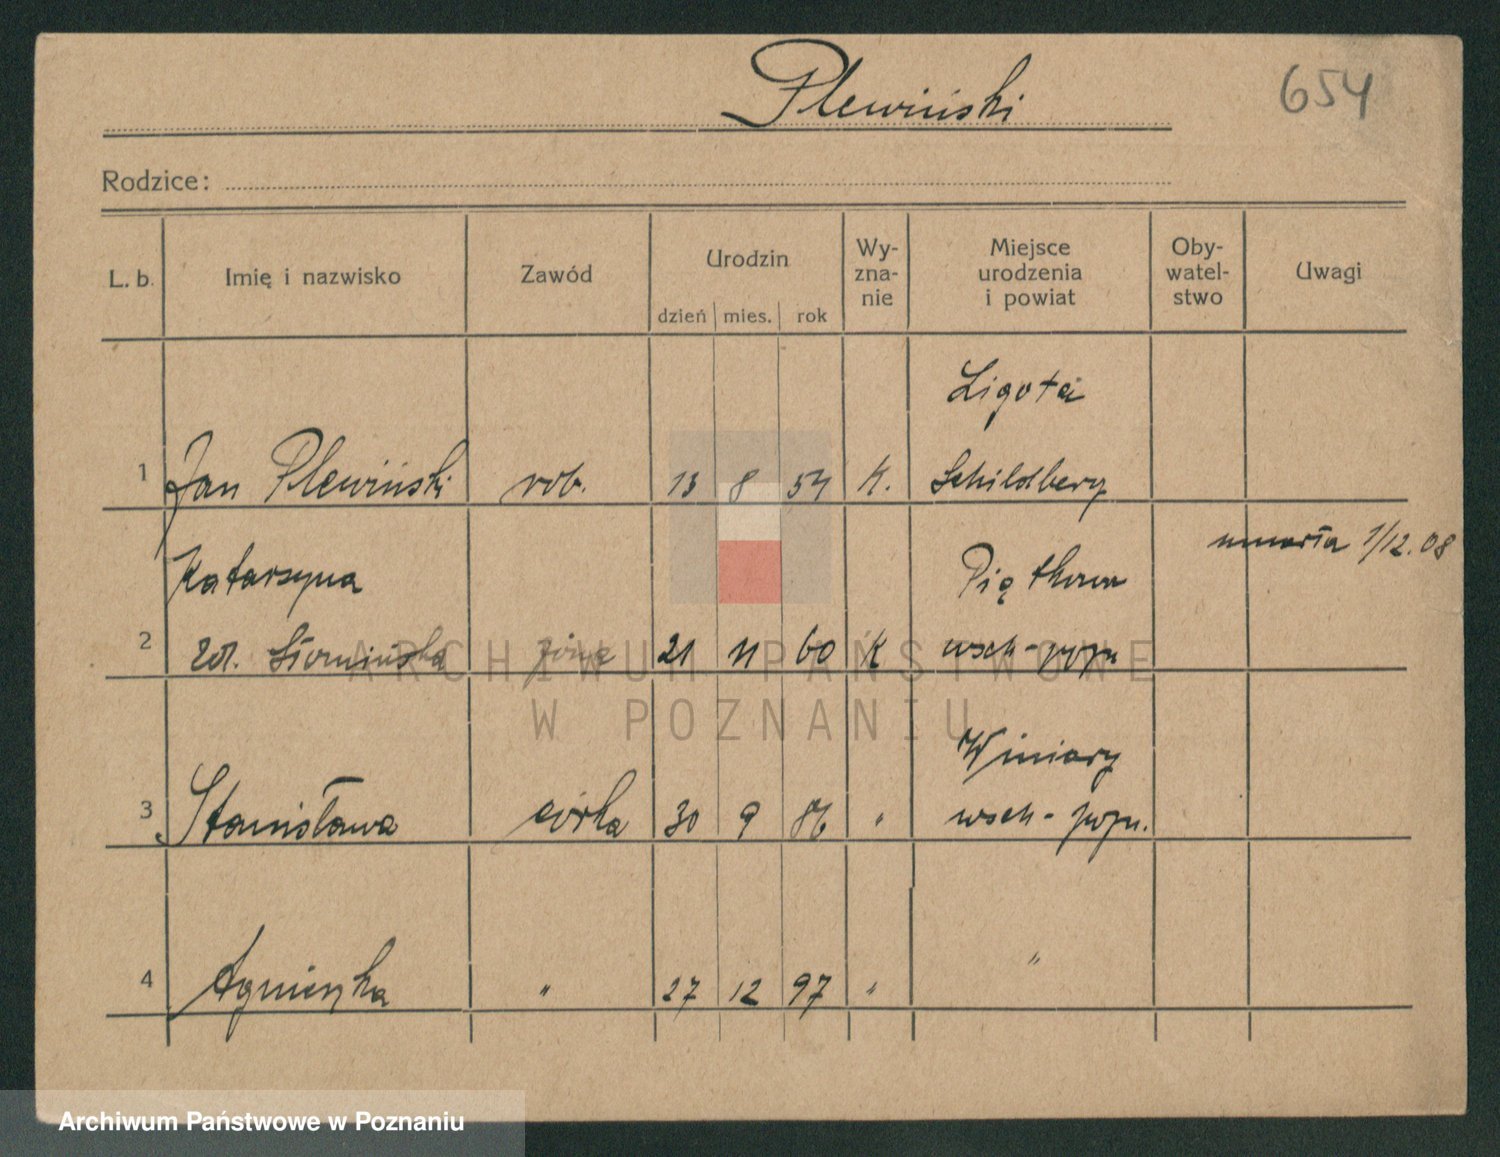 Plewiński
654
Rodzice:
L. b.
Imię i nazwisko
Zawód
Urodzin
dzień
mies.
rok
Wy-
zna-
nie
Miejsce
urodzenia
i powiat
Oby-
watel-
stwo
Uwagi
Ligota
1 Jan Plewiński rob. 13 8 54 K. Schildberg
Katarzyna Piątkowo umarła 1/12. 08
2 żona 21 11 60 K wsch-pozn
Winiary
3 Stanisława córka 30 9 86 " wsch-pozn.
"
4 Agnieszka " 27 12 97 "
ARCHIWUM PAŃSTWOWE
W POZNANIU
Archiwum Państwowe w Poznaniu